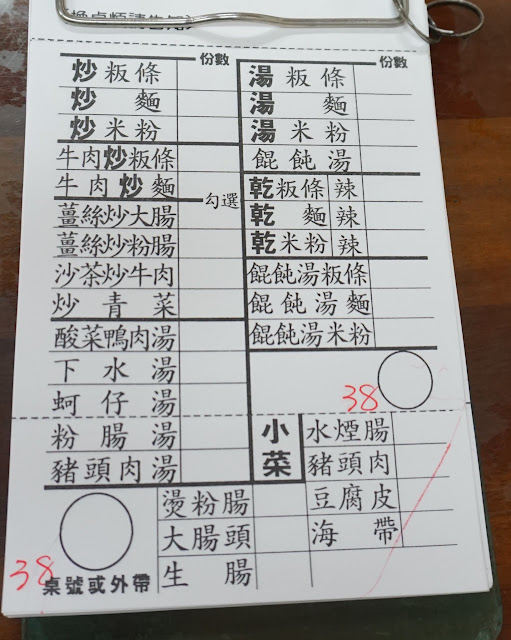 換桌煩請告知
份數
炒粄條
炒麵
炒米粉
牛肉炒粄條
牛肉炒麵
薑絲炒大腸
薑絲炒粉腸
沙茶炒牛肉
炒青菜
酸菜鴨肉湯
下水湯
蚵仔湯
粉腸湯
豬頭肉湯
份數
湯粄條
湯麵
湯米粉
餛飩湯
勾選
乾粄條 辣
乾麵 辣
乾米粉 辣
餛飩湯粄條
餛飩湯麵
餛飩湯米粉
38
小菜
水煙腸
豬頭肉
豆腐皮
海帶
燙粉腸
大腸頭
生腸
38
桌號或外帶